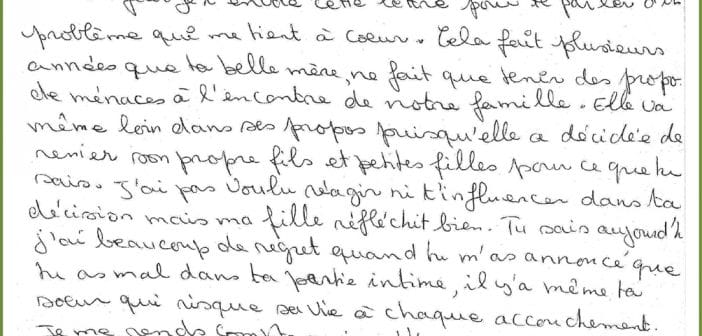 encore cette lettre pour te parler d'un
problème qui me tient à coeur. Cela fait plusieurs
années que ta belle mère, ne fait que tenir des propo
de ménaces à l'encontre de notre famille. Elle va
même loin dans ses propos puisqu'elle a décidée de
renier son propre fils et petites filles pour ce que tu
sais. J'ai pas voulu réagir ni t'influencer dans ta
décision mais ma fille réfléchit bien. Tu sais aujourd'h
j'ai beaucoup de regret quand tu m'as annoncé que
tu as mal dans ta partie intime, il y'a même ta
soeur qui risque sa vie à chaque accouchement.
Je me rends compte